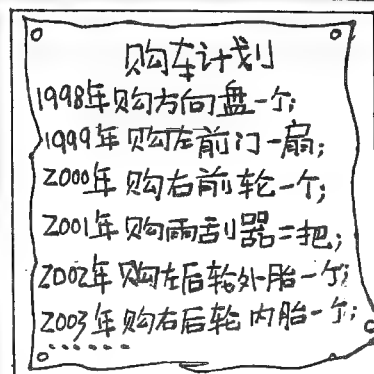 购车计划
1998年购方向盘一个;
1999年购左前门一扇;
2000年购右前轮一个;
2001年购雨刮器二把;
2002年购左后轮外胎一个;
2003年购右后轮内胎一个;
……